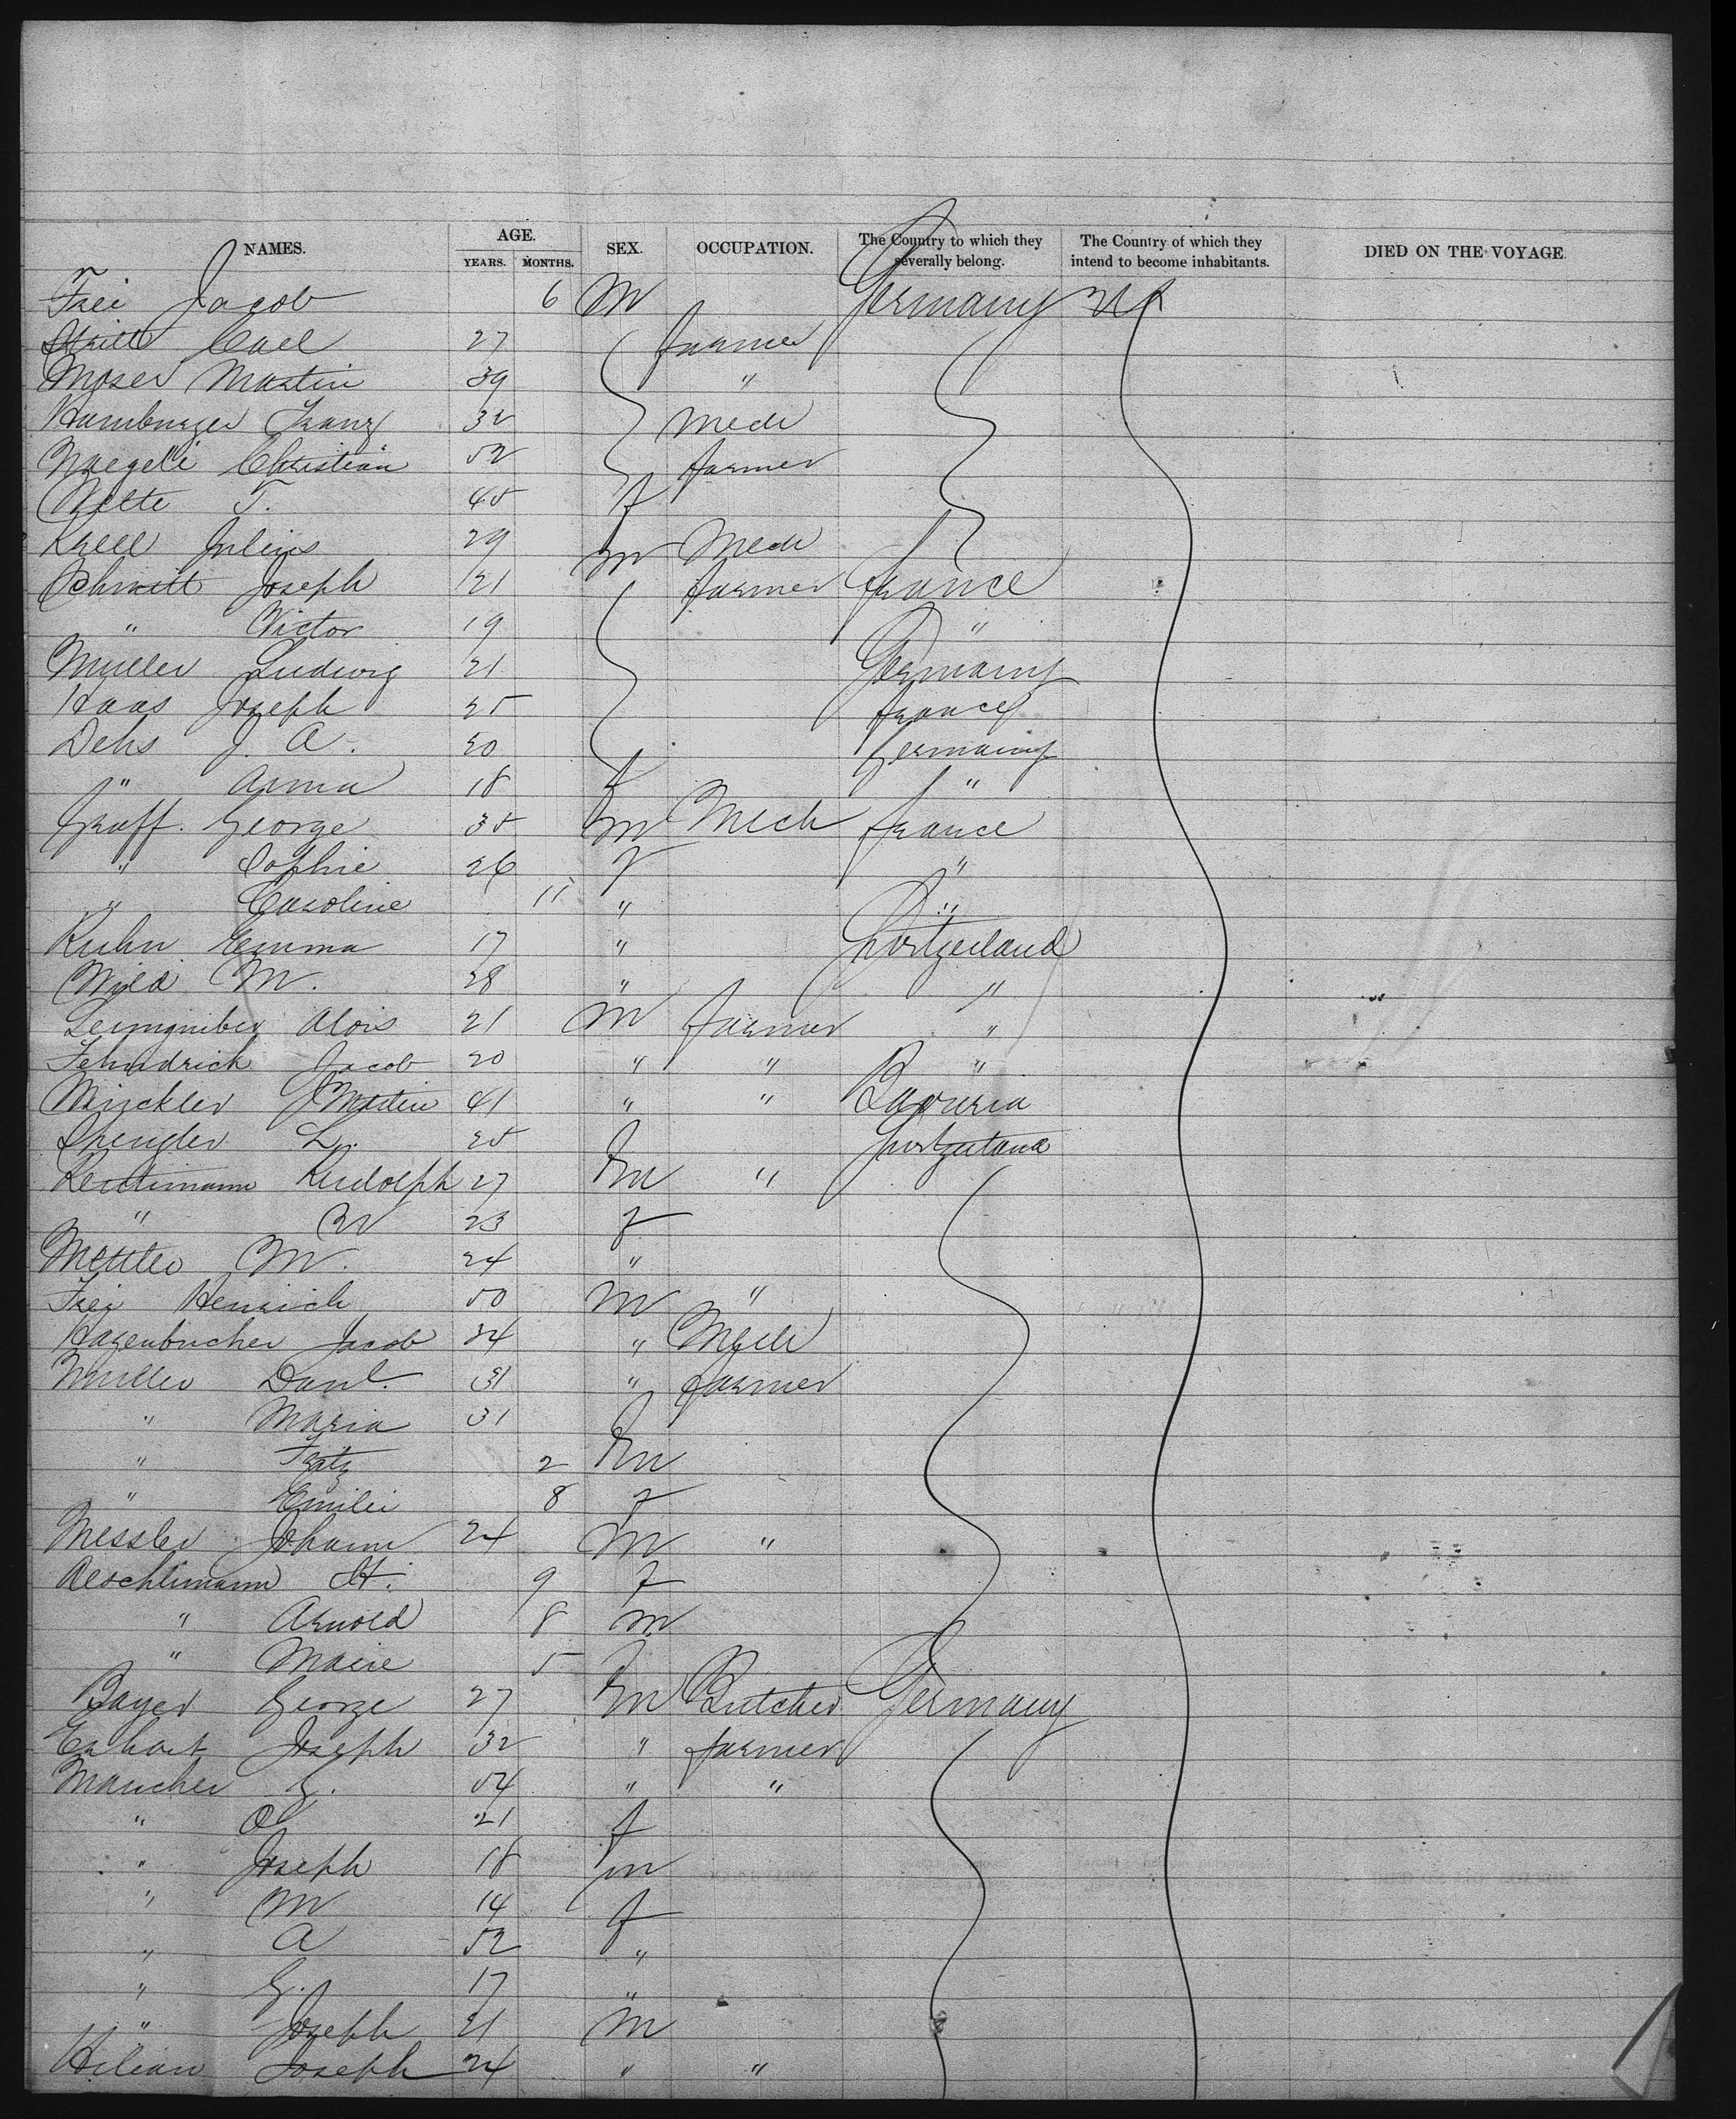 NAMES. AGE. SEX. OCCUPATION. The Country to which they severally belong. The Country of which they intend to become inhabitants. DIED ON THE VOYAGE.
YEARS. MONTHS.
Frei Jacob 6 M Germany
Carl 27 farmer
Moser Martin 39 "
Hamburger Franz 32 Mech
Naegeli Christian 52 farmer
Witte T. 45 f
Krell Julius 29 m Mech
Schmitt Joseph 21 farmer France
" Victor 19 "
Müller Ludwig 21 Germany
Haas Joseph 25 France
Dehs J A. 20 Germany
" Anna 18 f "
Graff. George 35 m Mech France
" Sophie 26 f "
" Caroline 11 " "
Kuhn Emma 17 " Switzerland
Wild M. 28 " "
Leimgruber Alois 21 M farmer "
Jacob 20 " " "
Winckler J Martin 41 " " Bavaria
Spengler L. 25 Switzerland
Rudolph 27 m "
" 23 f
Mettler M. 24 "
Frei Henrich 50 M "
Hagenbucher Jacob 34 " Mech
Muller Danl. 31 " farmer
" Maria 31
" Fritz 2 m
" Emilie 8 f
Messler Johann 24 M "
Aeschlimann H. 9 f
" Arnold 8 m
" Marie 5
Bayer George 27 m Butcher Germany
Erhart Joseph 32 " farmer
Maucher G. 54 " "
" O 21 f
" Joseph 18 m
" M 14 f
" A 52 "
" G. 17 "
" Joseph 21 M
Kilian Joseph 24 " "